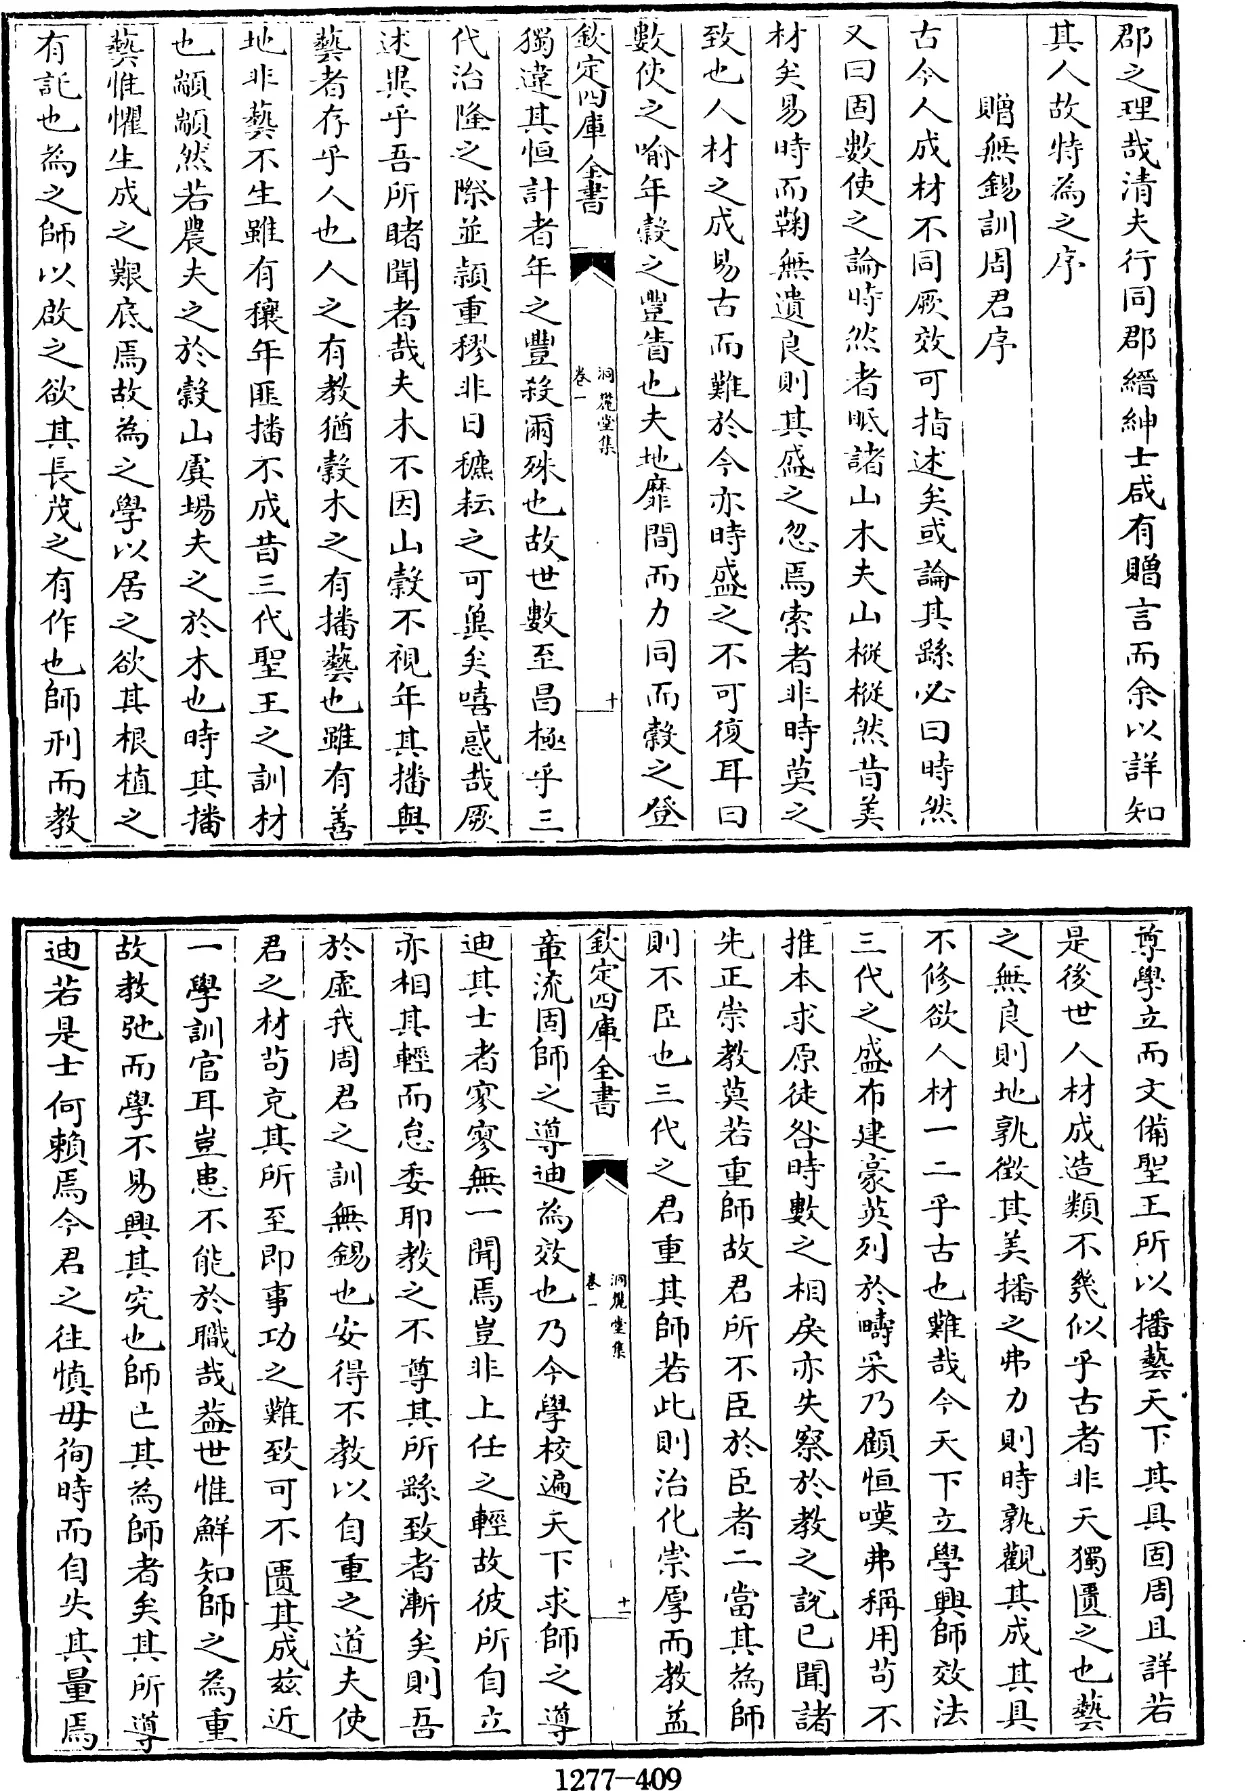 郡之理哉清夫行同郡縉紳士咸有贈言而余以詳知
其人故特為之序
贈無錫訓周君序
古今人成材不同厥效可指述矣或論其繇必曰時然
又曰固數使之論時然者眂諸山木夫山樅樅然昔美
材矣易時而鞠無遺良則其盛之忽焉索者非時莫之
致也人材之成易古而難於今亦時盛之不可復耳曰
數使之喻年穀之豐眚也夫地靡間而力同而穀之登
欽定四庫全書
洞麓堂集
卷一
十
獨違其恒計者年之豐殺爾殊也故世數至昌極乎三
代治隆之際並頴重穋非日穮耘之可㒷矣嘻惑哉厥
述異乎吾所睹聞者哉夫木不因山穀不視年其播與
藝者存乎人也人之有教猶穀木之有播藝也雖有善
地非藝不生雖有穰年匪播不成昔三代聖王之訓材
也顒顒然若農夫之於穀山虞場夫之於木也時其播
藝惟懼生成之艱底焉故為之學以居之欲其根植之
有託也為之師以啟之欲其長茂之有作也師刑而教
尊學立而文備聖王所以播藝天下其具固周且詳若
是後世人材成造類不幾似乎古者非天獨匱之也藝
之無良則地孰徵其美播之弗力則時孰觀其成其具
不修欲人材一二乎古也難哉今天下立學興師效法
三代之盛布建豪英列於疇采乃顧恒嘆弗稱用苟不
推本求原徒咎時數之相戾亦失察於教之說已聞諸
先正崇教莫若重師故君所不臣於臣者二當其為師
則不臣也三代之君重其師若此則治化崇厚而教益
欽定四庫全書
洞麓堂集
卷一
十一
章流固師之導迪為效也乃今學校遍天下求師之導
迪其士者寥寥無一聞焉豈非上任之輕故彼所自立
亦相其輕而怠委耶教之不尊其所繇致者漸矣則吾
於虛我周君之訓無錫也安得不教以自重之道夫使
君之材苟充其所至即事功之難致可不匱其成茲近
一學訓官耳豈患不能於職哉葢世惟鮮知師之為重
故教弛而學不易興其究也師亡其為師者矣其所導
迪若是士何賴焉今君之往慎毋徇時而自失其量焉
1277-409